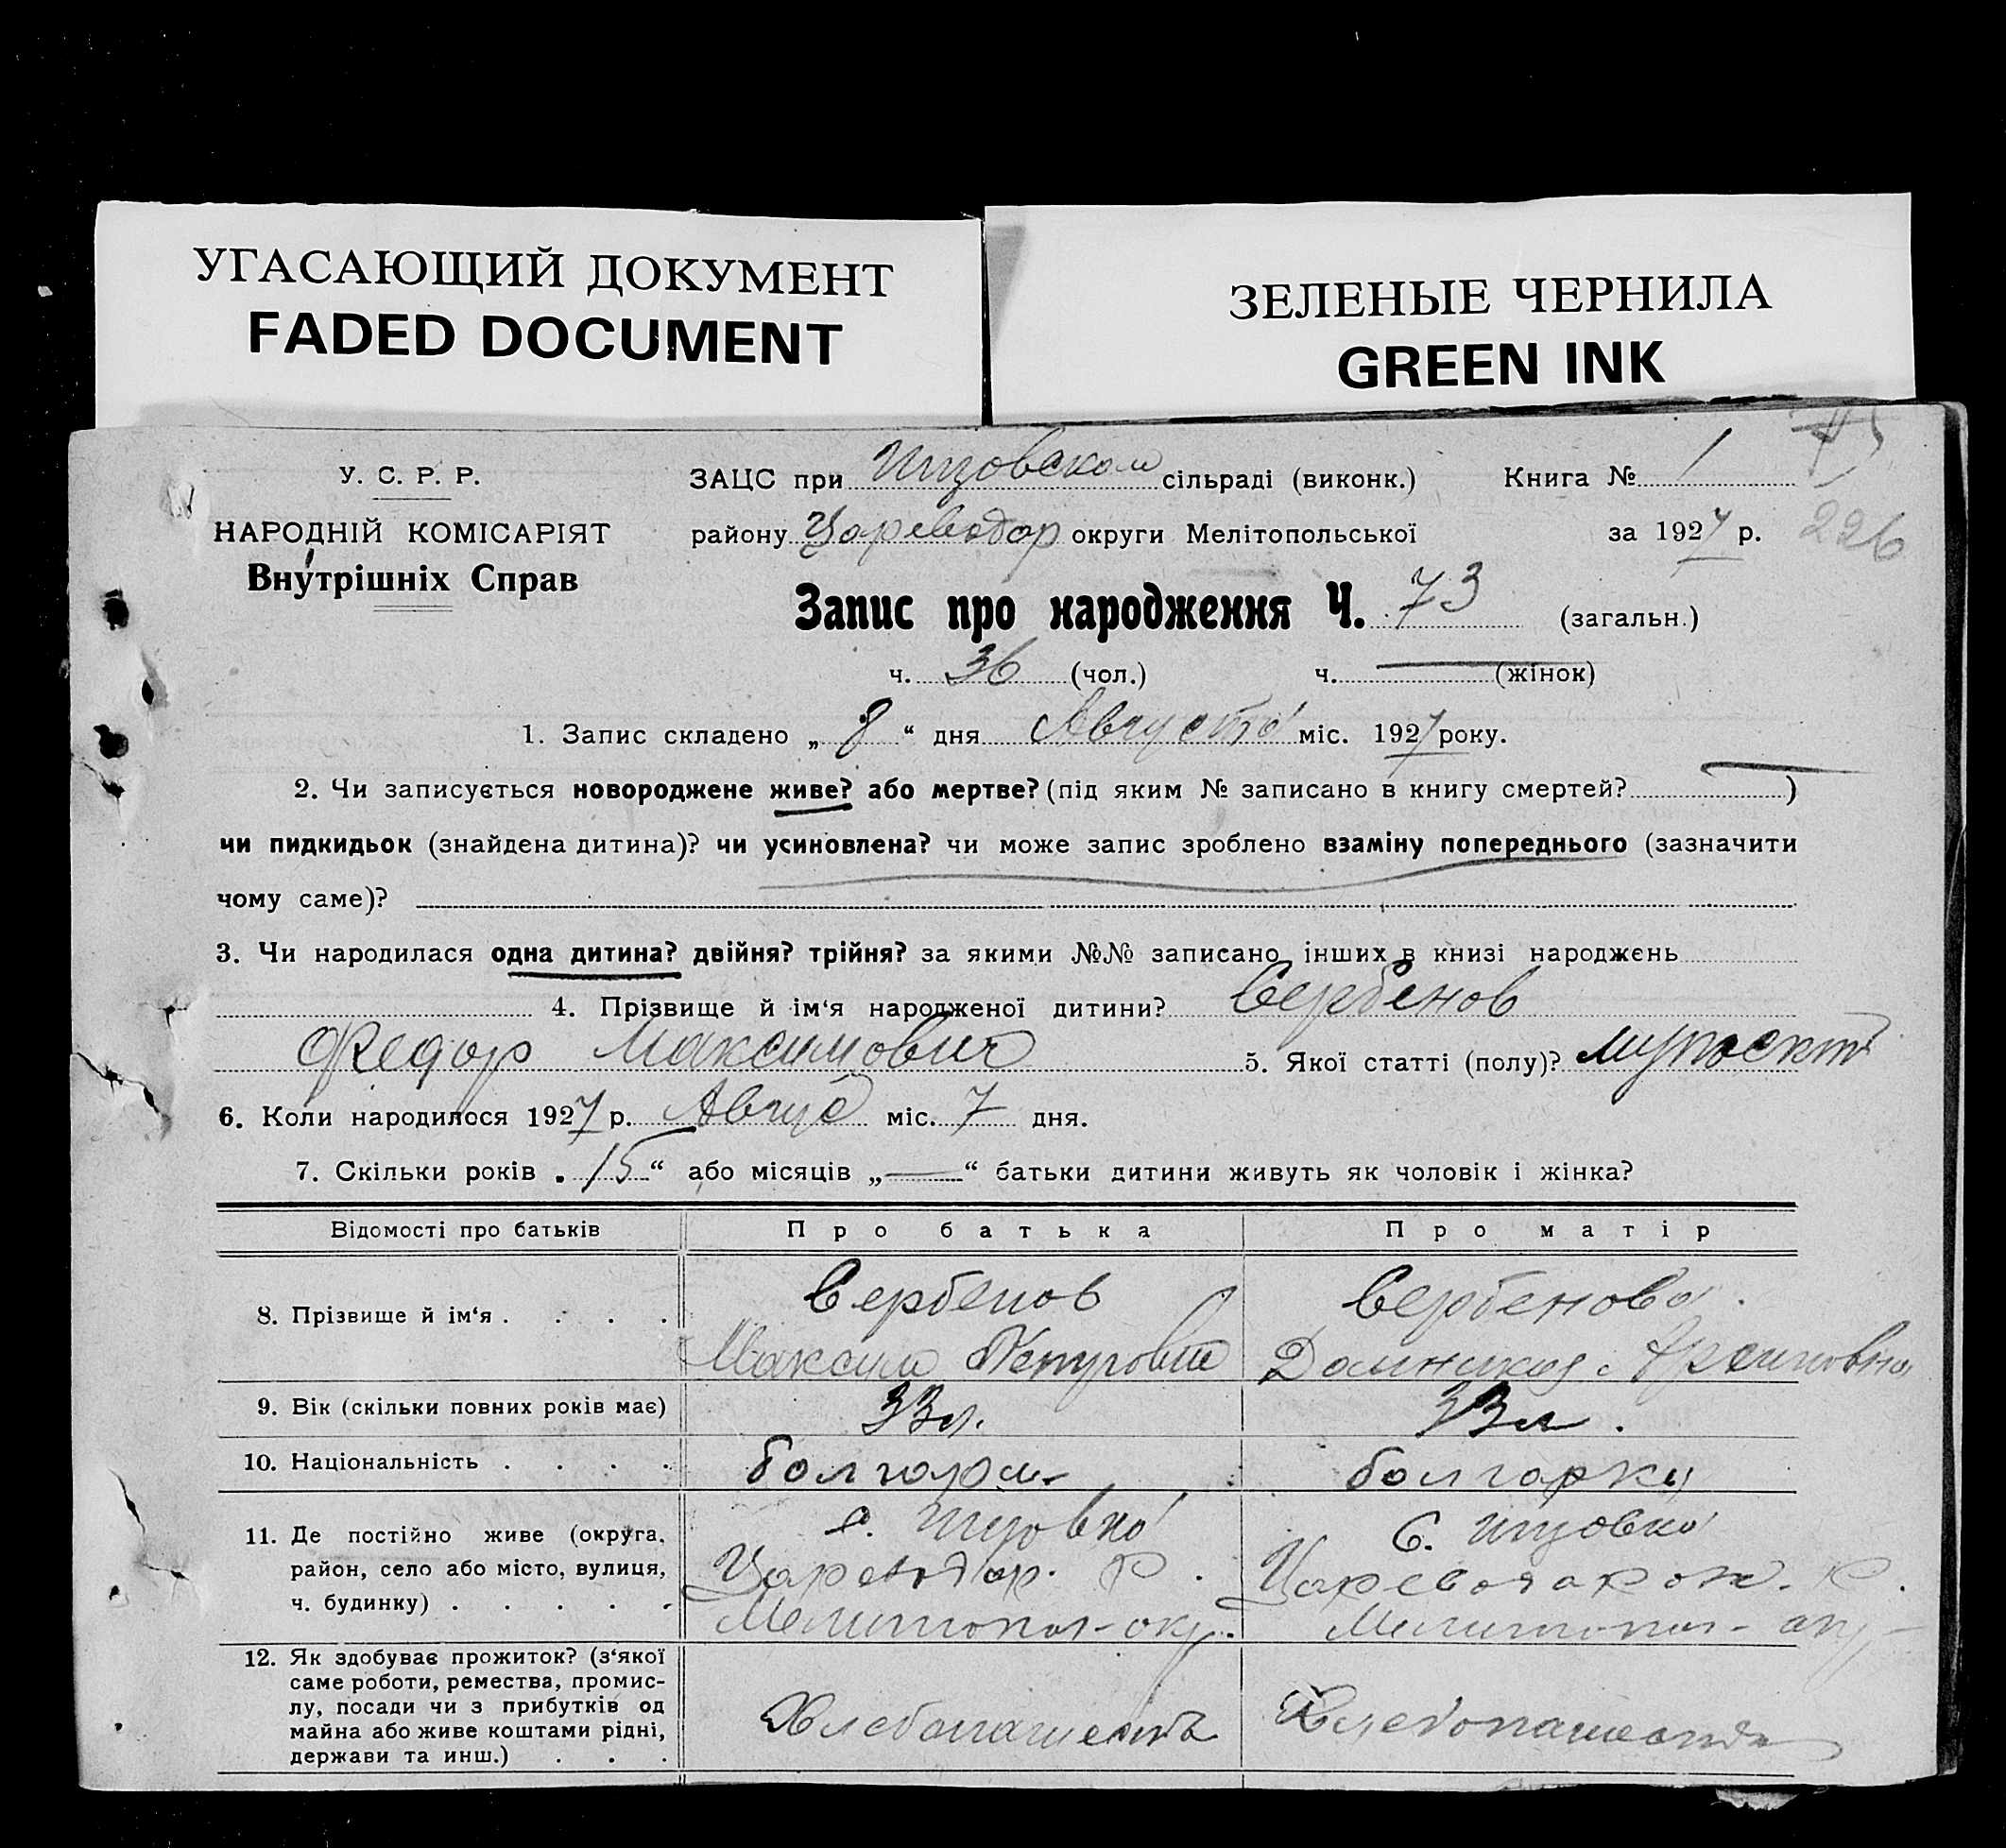 УГАСАЮЩИЙ ДОКУМЕНТ
FADED DOCUMENT
ЗЕЛЕНЫЕ ЧЕРНИЛА
GREEN INK
У. С. Р. Р.
НАРОДНІЙ КОМІСАРІЯТ
Внутрішніх Справ
ЗАЦС при сільраді (виконк.) Книга № 1
району Цареводар округи Мелітопольської за 1927 р.
226
Запис про народження Ч. 73 (загальн.)
ч. 36 (чол.) ч. (жінок)
1. Запис складено „ 8 “ дня Августа міс. 1927 року.
2. Чи записується новороджене живе? або мертве? (під яким № записано в книгу смертей? )
чи пидкидьок (знайдена дитина)? чи усиновлена? чи може запис зроблено взаміну попереднього (зазначити
чому саме)?
3. Чи народилася одна дитина? двійня? трійня? за якими №№ записано інших в книзі народжень
4. Прізвище й ім‘я народженої дитини? Вербенов
Федор Максимович 5. Якої статті (полу)?
6. Коли народилося 1927 р. Авгус міс. 7 дня.
7. Скільки років „ 15 “ або місяців „ — “ батьки дитини живуть як чоловік і жінка?
Відомості про батьків Про батька Про матір
8. Прізвище й ім‘я . . . . Вербенов Вербенова
Максим Петрович Домникия
9. Вік (скільки повних років має) 33 л. 33 л.
10. Національність . . . . болгари болгарка
11. Де постійно живе (округа, с. с.
район, село або місто, вулиця, Цареводар. Р. Р.
ч. будинку) . . . . . Мелитопол-окр. Мелитопол-
12. Як здобуває прожиток? (з‘якої
саме роботи, ремества, промис-
лу, посади чи з прибутків од
майна або живе коштами рідні,
держави та инш.) . . . Хлебопашеств Хлебопашеств